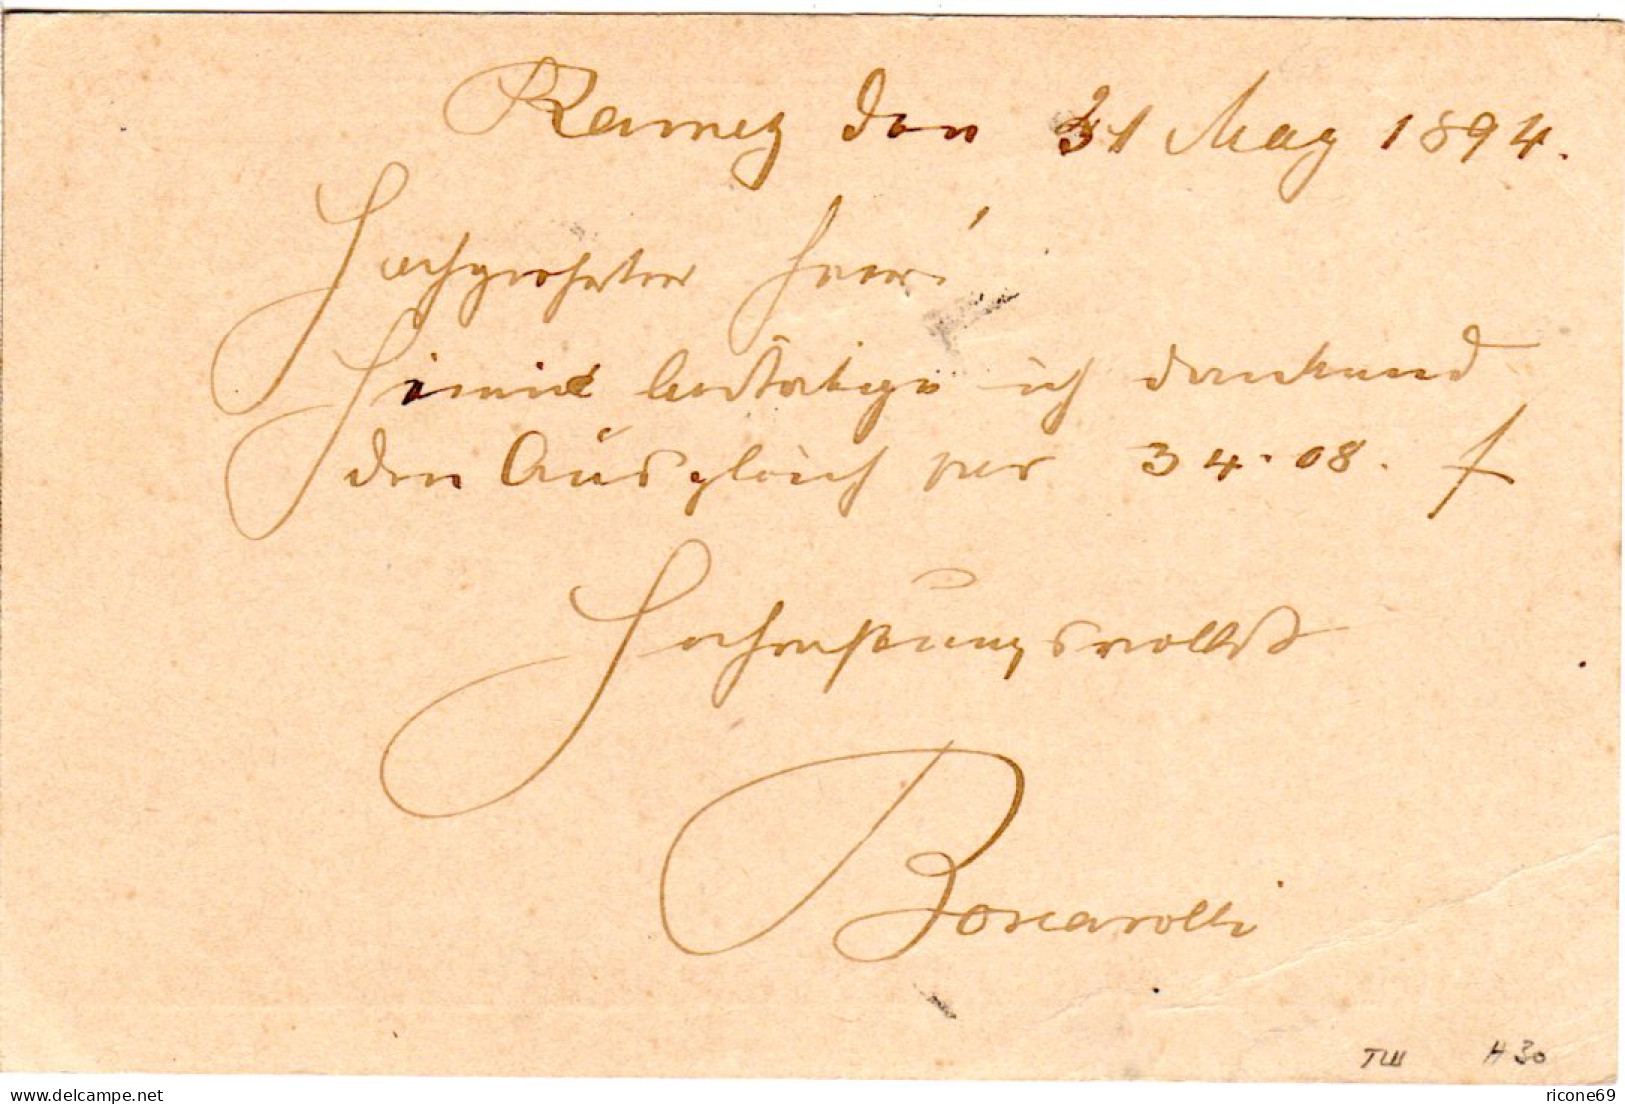 Ramez den 31 May 1894.
Hochgeehrter Herr!
Hiemit bestätige ich dankend
den Ausgleich per 34.08. f
Hochachtungsvollst
Boscarolli
TW H 30
delcampe.net
ricone69